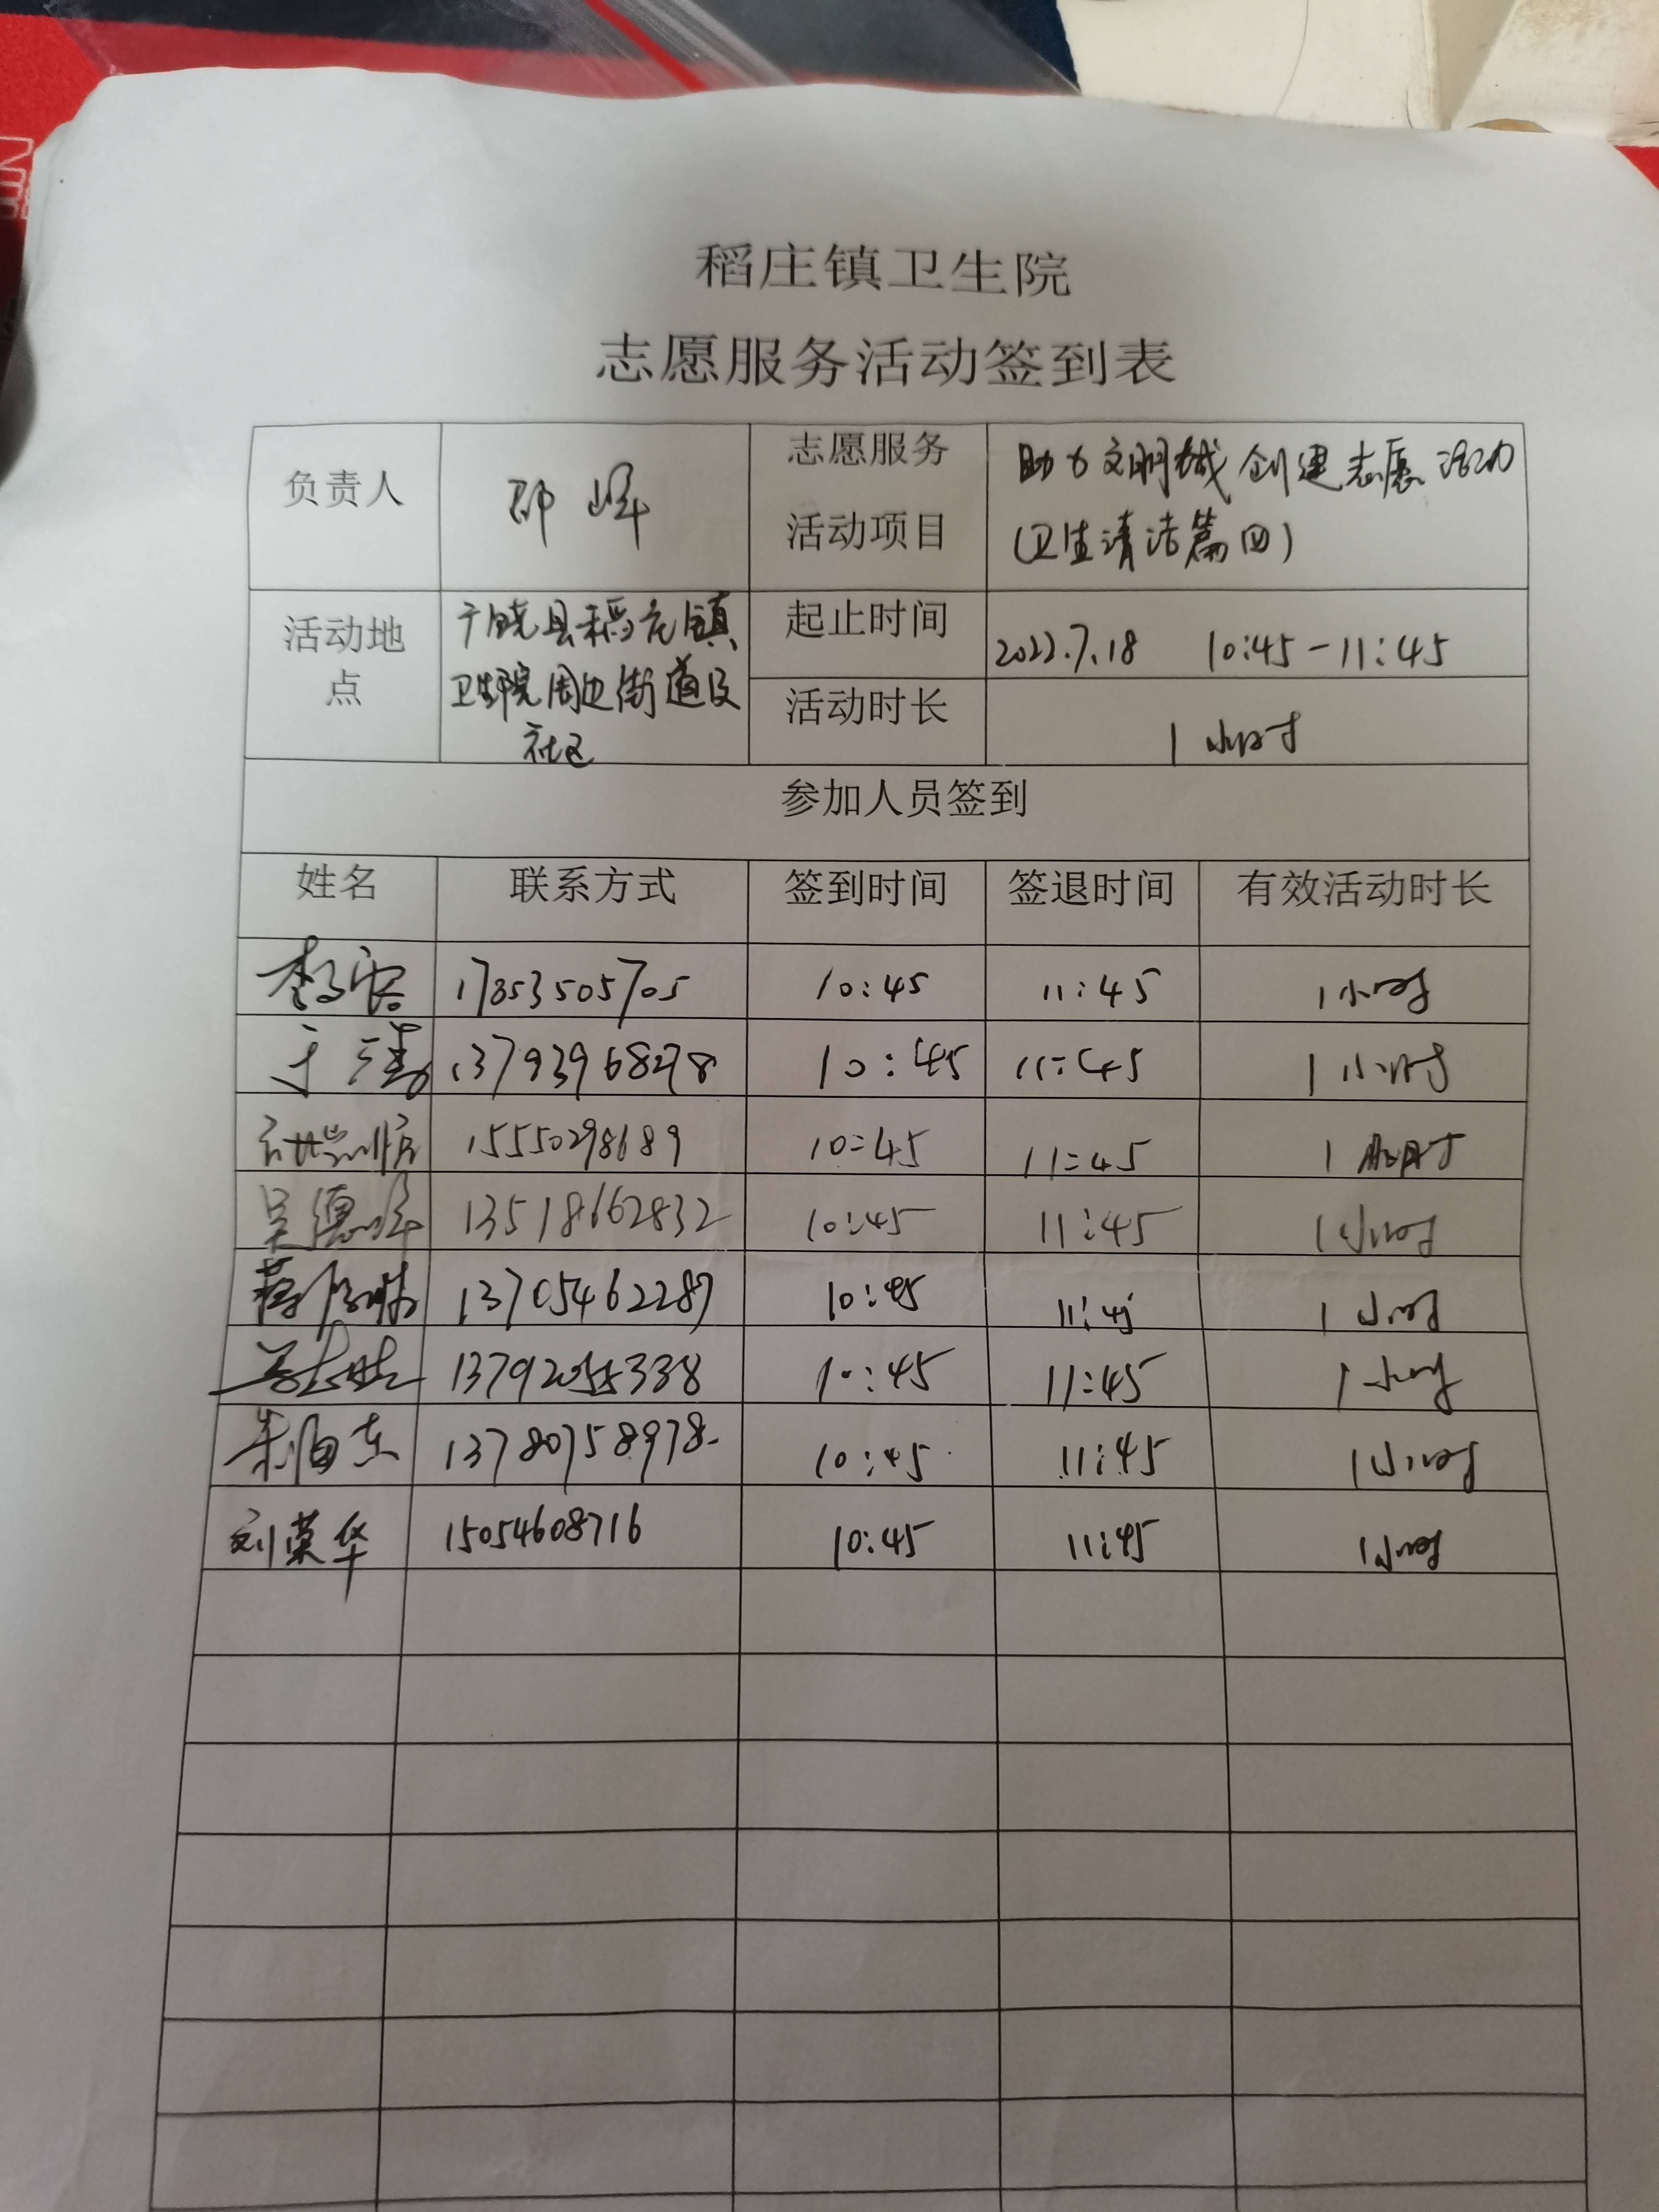 稻庄镇卫生院
志愿服务活动签到表
负责人 邵峰 志愿服务活动项目 助力文明城创建志愿活动
(卫生清洁篇四)
活动地点 广饶县稻庄镇
卫生院周边街道及
社区
起止时间 2022.7.18 10:45-11:45
活动时长 1小时
参加人员签到
姓名 联系方式 签到时间 签退时间 有效活动时长
17853505705 10:45 11:45 1小时
于涛 13793968278 10:45 11:45 1小时
15550298689 10:45 11:45 1小时
吴德峰 13518662832 10:45 11:45 1小时
13705462287 10:45 11:45 1小时
10:45 11:45 1小时
13780758978 10:45 11:45 1小时
刘荣华 15054608716 10:45 11:45 1小时